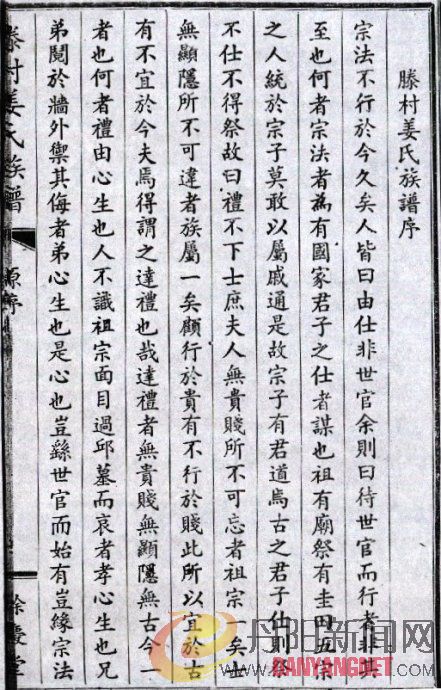 滕村姜氏族譜序
宗法不行於今久矣人皆曰由仕非世官余則曰待世官而行者非其
至也何者宗法者為有國家君子之仕者謀也祖有廟祭有圭田五宗
之人統於宗子莫敢以屬戚通是故宗子有君道焉古之君子仕則祭
不仕不得祭故曰禮不下士庶夫人無貴賤所不可忘者祖宗一矣士
無顯隱所不可違者族屬一矣顧行於貴有不行於賤此所以宜於古
有不宜於今夫焉得謂之達禮也哉達禮者無貴賤無顯隱無古今
者也何者禮由心生也人不識祖宗面目過邱墓而哀者孝心生也兄
弟鬩於牆外禦其侮者弟心生也是心也豈繇世官而始有豈緣宗法
滕村姜氏族譜
源序
餘慶堂
丹阳新闻网
DANYANGNET.COM